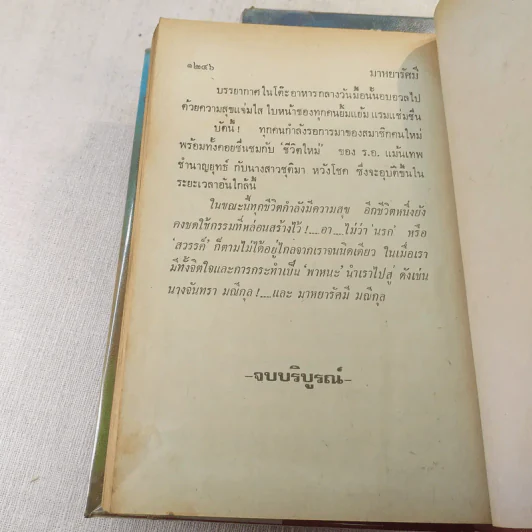 ๑๒๔๖
มาหยารัศมี
บรรยากาศในโต๊ะอาหารกลางวันมื้อนั้นอบอวลไป
ด้วยความสุขแจ่มใส ใบหน้าของทุกคนยิ้มแย้ม แรมแช่มชื่น
บัดนี้! ทุกคนกำลังรอการมาของสมาชิกคนใหม่
พร้อมทั้งคอยชื่นชมกับ ‘ชีวิตใหม่’ ของ ร.อ. แม้นเทพ
ชำนาญยุทธ์ กับนางสาวชุติมา หวังโชค ซึ่งจะอุบัติขึ้นใน
ระยะเวลาอันใกล้นี้
ในขณะนี้ทุกชีวิตกำลังมีความสุข อีกชีวิตหนึ่งยัง
คงชดใช้กรรมที่หล่อนสร้างไว้!....อา....ไม่ว่า ‘นรก’ หรือ
‘สวรรค์’ ก็ตามไม่ได้อยู่ไกลจากเราจนนิดเดียว ในเมื่อเรา
มีทั้งจิตใจและการกระทำเป็น ‘พาหนะ’ นำเราไปสู่ ดังเช่น
นางจันทรา มณีกุล!.....และ มาหยารัศมี มณีกุล
–จบบริบูรณ์–